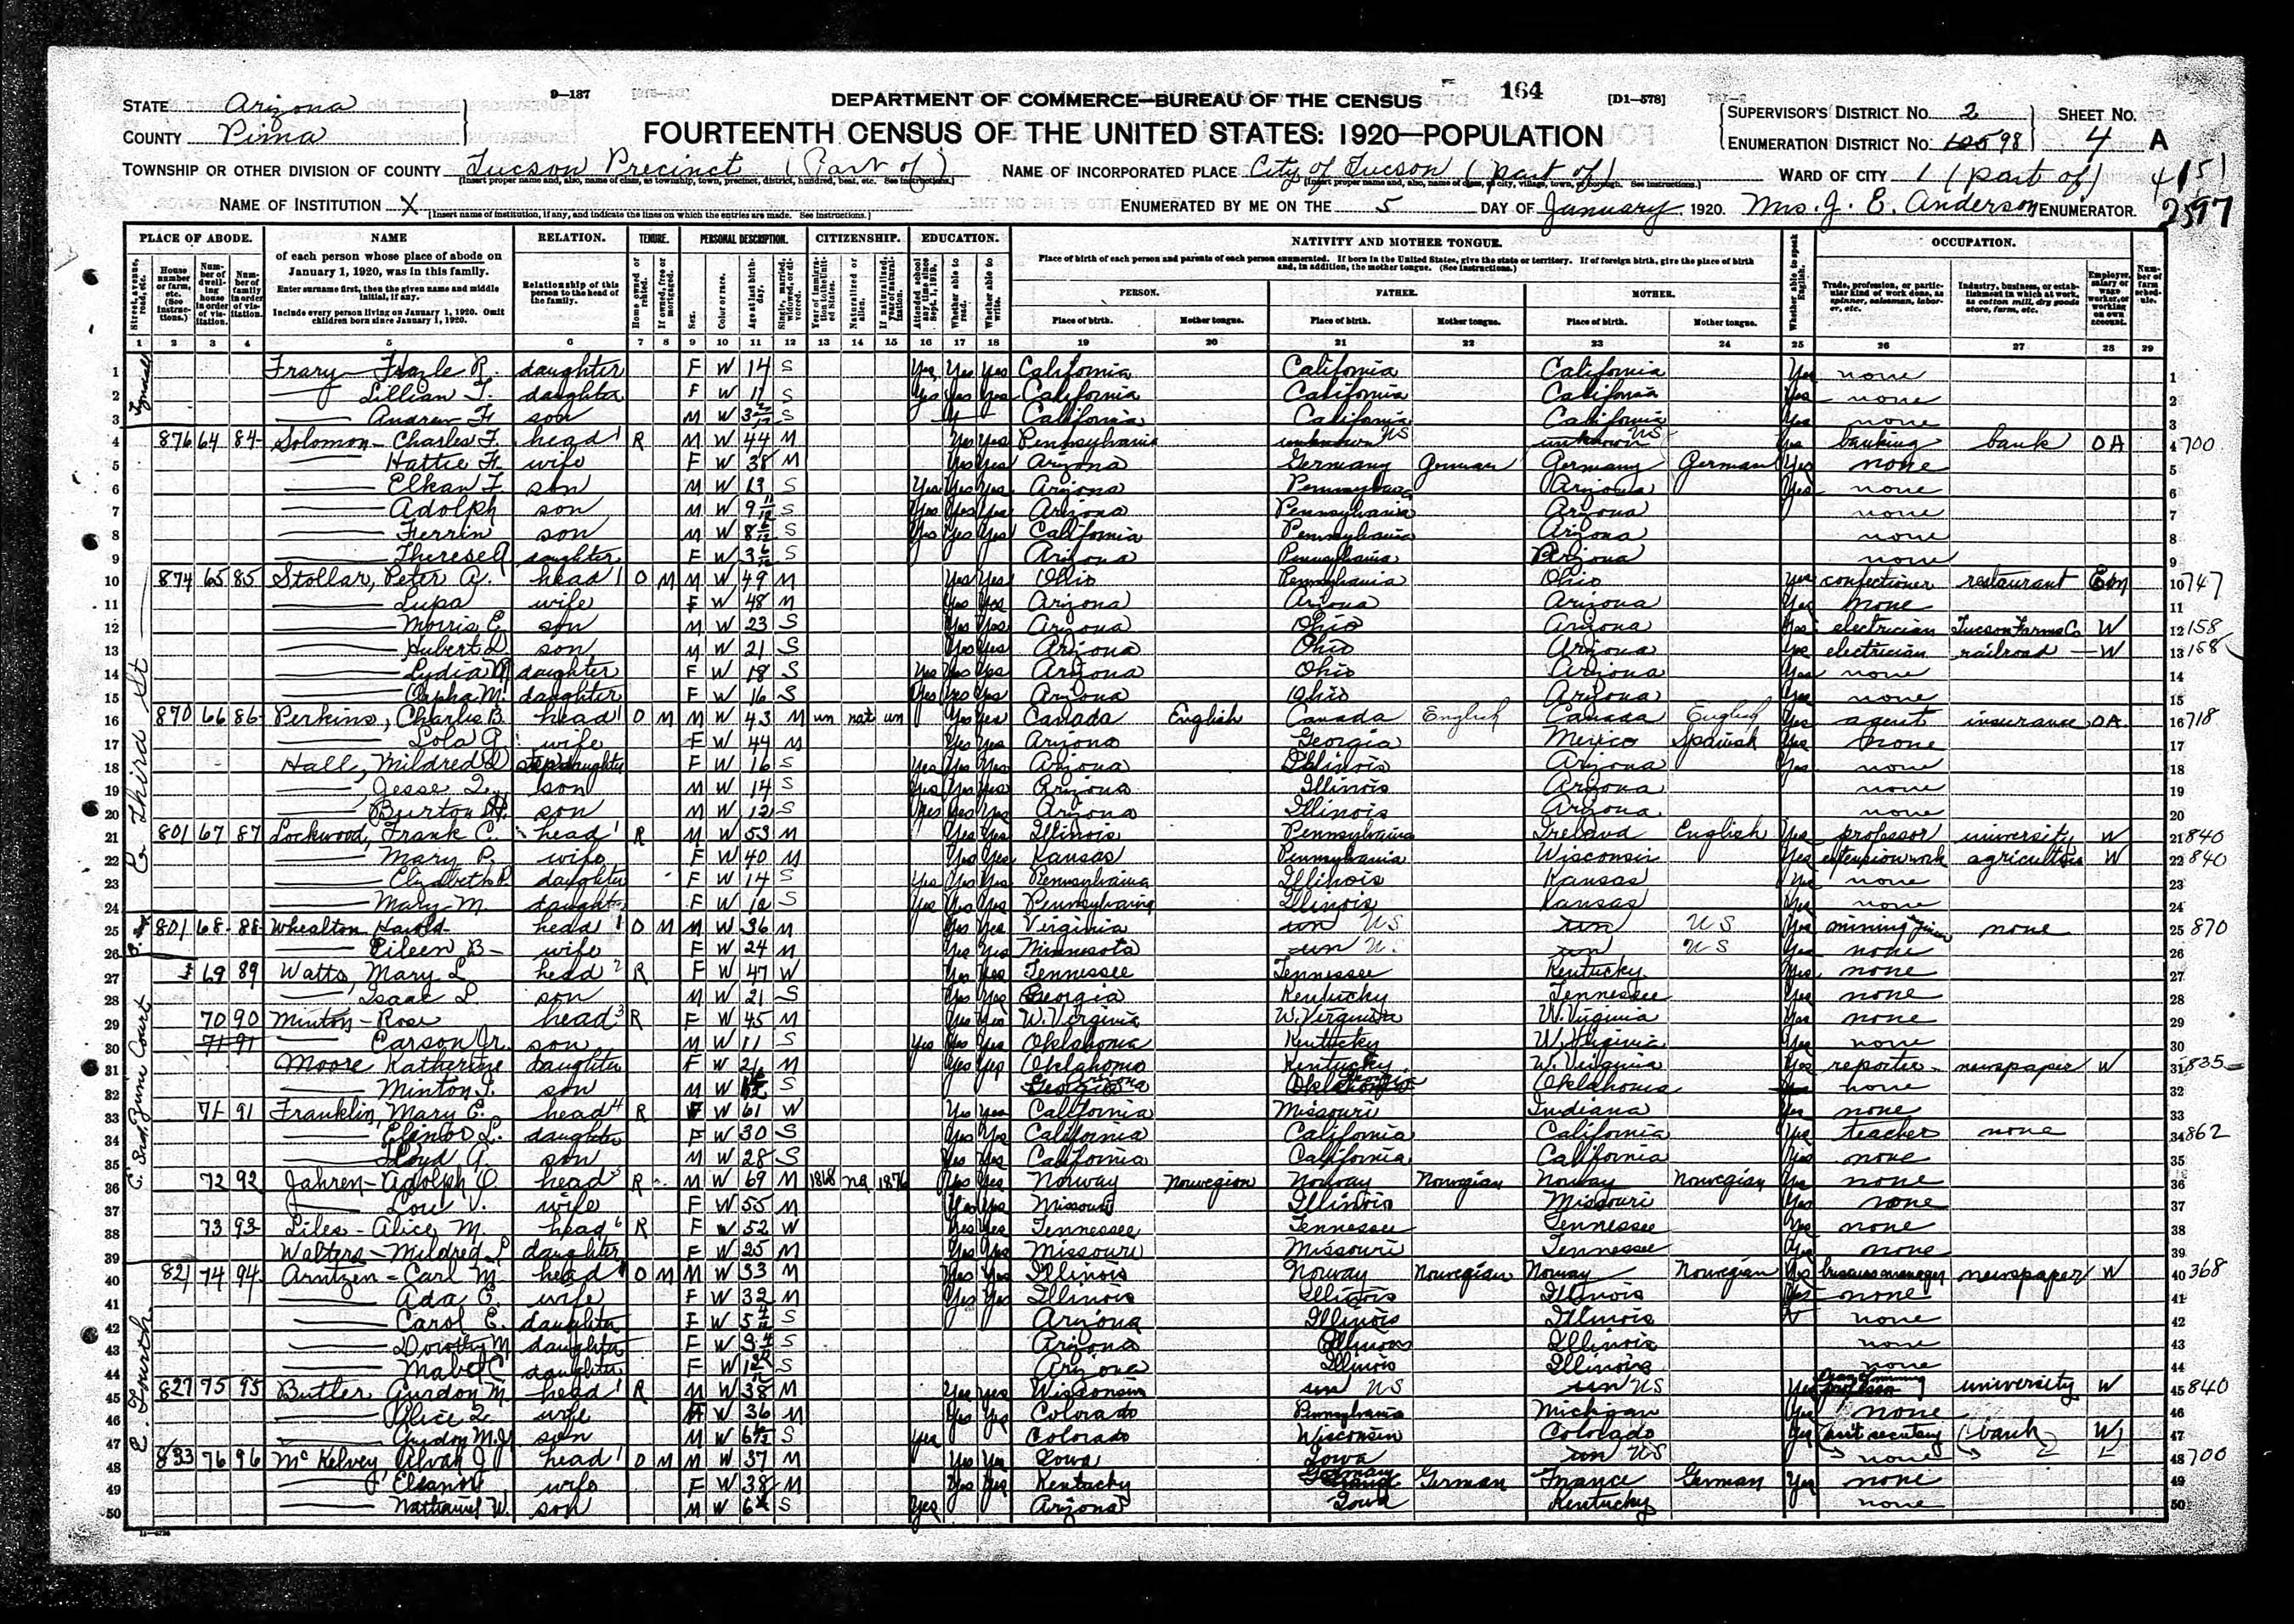 9—137
164
[D1—578]
STATE Arizona
COUNTY Pima
DEPARTMENT OF COMMERCE—BUREAU OF THE CENSUS
FOURTEENTH CENSUS OF THE UNITED STATES: 1920—POPULATION
SUPERVISOR'S DISTRICT NO. 2 SHEET NO.
ENUMERATION DISTRICT NO. 98 4 A
TOWNSHIP OR OTHER DIVISION OF COUNTY Tucson Precinct (Part of) NAME OF INCORPORATED PLACE City of Tucson (part of) WARD OF CITY 1 (part of)
NAME OF INSTITUTION X ENUMERATED BY ME ON THE 5 DAY OF January, 1920. Mrs. J. E. Anderson ENUMERATOR.
PLACE OF ABODE. NAME RELATION. TENURE. PERSONAL DESCRIPTION. CITIZENSHIP. EDUCATION. NATIVITY AND MOTHER TONGUE. OCCUPATION.
of each person whose place of abode on January 1, 1920, was in this family.
Enter surname first, then the given name and middle initial, if any.
Include every person living on January 1, 1920. Omit children born since January 1, 1920.
Relationship of this person to the head of the family.
Place of birth of each person and parents of each person enumerated. If born in the United States, give the state or territory. If of foreign birth, give the place of birth and, in addition, the mother tongue. (See instructions.)
PERSON. FATHER. MOTHER.
Place of birth. Mother tongue. Place of birth. Mother tongue. Place of birth. Mother tongue.
1 2 3 4 5 6 7 8 9 10 11 12 13 14 15 16 17 18 19 20 21 22 23 24 25 26 27 28 29
1 Frary daughter F W 14 S Yes Yes Yes California California California Yes none 1
2 Lillian daughter F W S Yes Yes Yes California California California Yes none 2
3 Andrew son M W S California California California Yes none 3
4 876 64 84 Solomon Charles F. head R M W 44 M Yes Yes Pennsylvania unknown US unknown US Yes banking bank OA 4 700
5 Hattie F. wife F W 38 M Yes Yes Arizona Germany German Germany German Yes none 5
6 Elkan son M W 13 S Yes Yes Yes Arizona Pennsylvania Arizona Yes none 6
7 Adolph son M W 9 S Yes Yes Yes Arizona Pennsylvania Arizona none 7
8 Ferrin son M W 8 S Yes Yes Yes California Pennsylvania Arizona none 8
9 Therese daughter F W 3 6/12 S Arizona Pennsylvania Arizona none 9
10 874 65 85 Stollar, Peter A. head O M M W 49 M Yes Yes Ohio Pennsylvania Ohio Yes confectioner restaurant Em 10 747
11 Lupa wife F W 48 M Yes Yes Arizona Arizona Arizona Yes none 11
12 Morris E. son M W 23 S Yes Yes Arizona Ohio Arizona Yes electrician Tucson Farms Co W 12 158
13 Hubert D. son M W 21 S Yes Yes Arizona Ohio Arizona Yes electrician railroad W 13 158
14 Lydia M daughter F W 18 S Yes Yes Yes Arizona Ohio Arizona Yes none 14
15 Orpha M. daughter F W 16 S Yes Yes Yes Arizona Ohio Arizona Yes none 15
16 870 66 86 Perkins, Charles B. head O M M W 43 M un nat un Yes Yes Canada English Canada English Canada English Yes agent insurance OA 16 718
17 Lola G. wife F W 44 M Yes Yes Arizona Georgia Mexico Spanish Yes none 17
18 Hall, Mildred D stepdaughter F W 16 S Yes Yes Yes Arizona Illinois Arizona Yes none 18
19 Jesse son M W 14 S Yes Yes Yes Arizona Illinois Arizona none 19
20 Burton H. son M W 12 S Yes Yes Yes Arizona Illinois Arizona none 20
21 801 67 87 Lockwood, Frank C. head R M W 53 M Yes Yes Illinois Pennsylvania Ireland English Yes professor university W 21 840
22 Mary P. wife F W 40 M Yes Yes Kansas Pennsylvania Wisconsin Yes extension work agriculture W 22 840
23 Elizabeth P. daughter F W 14 S Yes Yes Yes Pennsylvania Illinois Kansas Yes none 23
24 Mary M. daughter F W S Yes Yes Yes Pennsylvania Illinois Kansas Yes none 24
25 801 68 88 Whealton Harold head O M M W 36 M Yes Yes Virginia un US un US Yes mining none 25 870
26 Eileen B wife F W 24 M Yes Yes Minnesota un US un US Yes none 26
27 69 89 Watts, Mary L head 2 R F W 47 W Yes Yes Tennessee Tennessee Kentucky Yes none 27
28 Isaac L son M W 21 S Yes Yes Georgia Kentucky Tennessee Yes none 28
29 70 90 Minton Rose head 3 R F W 45 M Yes Yes W. Virginia W. Virginia W. Virginia Yes none 29
30 71 91 Carson Jr. son M W 11 S Yes Yes Yes Oklahoma Kentucky W. Virginia Yes none 30
31 Moore Katherine daughter F W M Yes Yes Oklahoma Kentucky W. Virginia Yes reporter newspaper W 31 835
32 Minton son M W S Oklahoma none 32
33 71 91 Franklin, Mary E. head 4 R F W 61 W Yes Yes California Missouri Indiana Yes none 33
34 Elinor L. daughter F W 30 S Yes Yes California California California Yes teacher none 34 862
35 Floyd A. son M W 28 S Yes Yes California California California Yes none 35
36 72 92 Jahren Adolph O. head 5 R M W 69 M 1868 na 1876 Yes Yes Norway Norwegian Norway Norwegian Norway Norwegian Yes none 36
37 Lou wife F W 55 M Yes Yes Missouri Illinois Missouri Yes none 37
38 73 93 Liles Alice M. head 6 R F W 52 W Yes Yes Tennessee Tennessee Tennessee Yes none 38
39 Walters Mildred daughter F W 25 M Yes Yes Missouri Missouri Tennessee Yes none 39
40 821 74 94 Arntzen Carl M. head O M M W 33 M Yes Yes Illinois Norway Norwegian Norway Norwegian Yes business manager newspaper W 40 368
41 Ada E. wife F W 32 M Yes Yes Illinois Illinois Illinois Yes none 41
42 Carol E. daughter F W 5 S Arizona Illinois Illinois none 42
43 Dorothy M daughter F W 3 S Arizona Illinois Illinois none 43
44 Mabel daughter F W S Arizona Illinois Illinois none 44
45 827 75 95 Butler Gurdon M. head R M W 38 M Yes Yes Wisconsin un US un US Yes university W 45 840
46 Alice wife F W 36 M Yes Yes Colorado Pennsylvania Michigan Yes none 46
47 Gurdon M. Jr son M W 6 S Yes Colorado Wisconsin Colorado Yes asst secretary bank W 47
48 833 76 96 McKelvey Alvah J head O M M W 37 M Yes Yes Iowa Iowa un US none 48 700
49 Eleanor wife F W 38 M Yes Yes Kentucky Germany German France German Yes none 49
50 Nathaniel W. son M W 6 S Yes Arizona Iowa Kentucky none 50